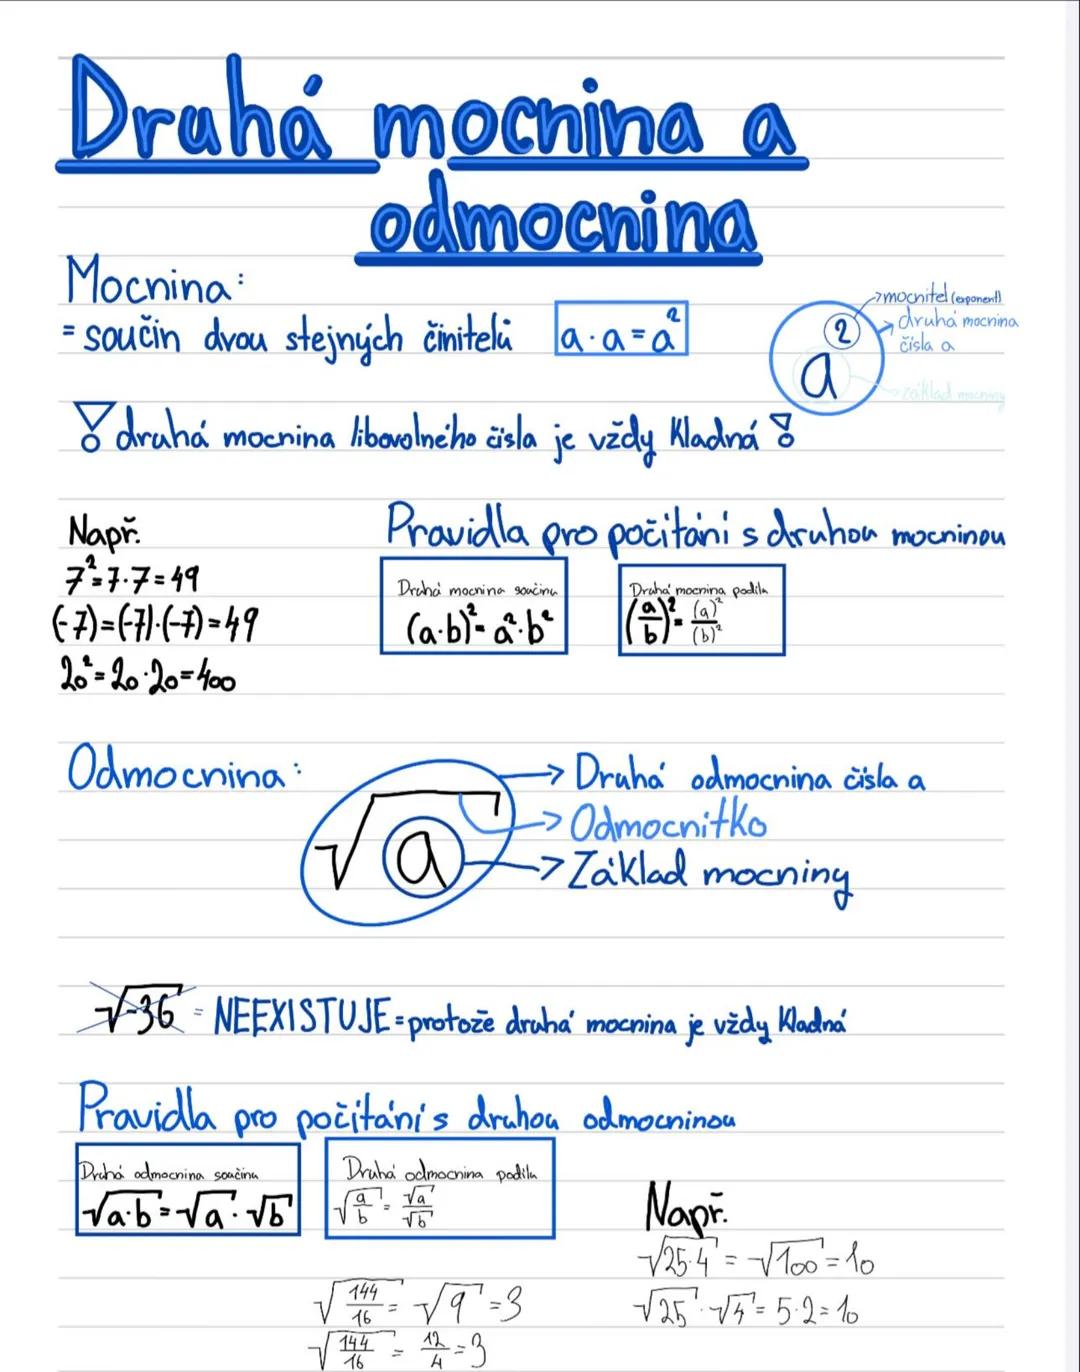 Druhá mocnina a
odmocnina
Mocnina:
= součin dvou stejných činitelů
a·a=a²
a²
mocnitel (exponent)
druhá mocnina
čísla a
základ mocniny
! druhá mocnina libovolného čísla je vždy kladná !
Např.
7²=7·7=49
(-7)=(-7)·(-7)=49
20²=20·20=400
Pravidla pro počítání s druhou mocninou
Druhá mocnina součinu
(a·b)²=a²·b²
Druhá mocnina podílu
(a/b)²=(a)²/(b)²
Odmocnina:
√a
Druhá odmocnina čísla a
Odmocnítko
Základ mocniny
√-36 = NEEXISTUJE=protože druhá mocnina je vždy kladná
Pravidla pro počítání s druhou odmocninou
Druhá odmocnina součinu
√a·b=√a·√b
Druhá odmocnina podílu
√a/b=√a/√b
Např.
√25·4=√100=10
√25·√4=5·2=10
√144/16=√9=3
√144/16=12/4=3